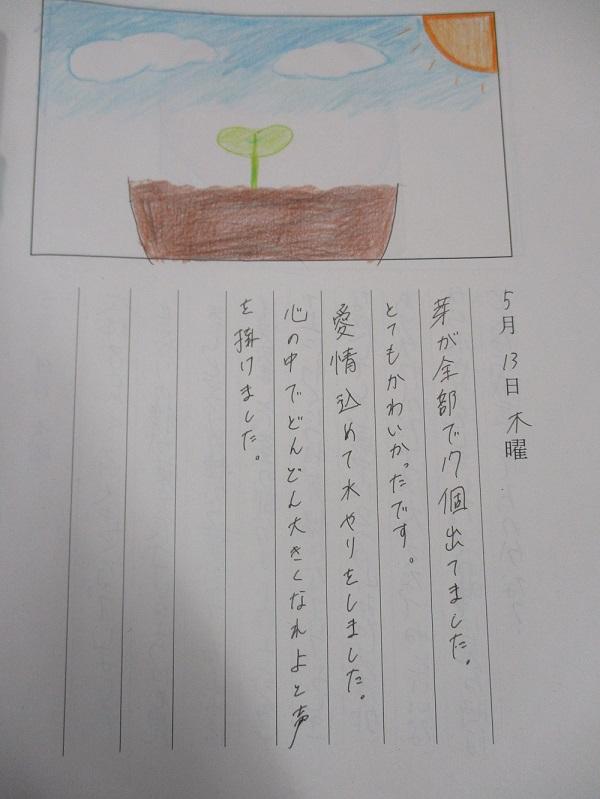 5月13日木曜
芽が全部で17個出てました。
とてもかわいかったです。
愛情込めて水やりをしました。
心の中でどんどん大きくなれよと声
を掛けました。